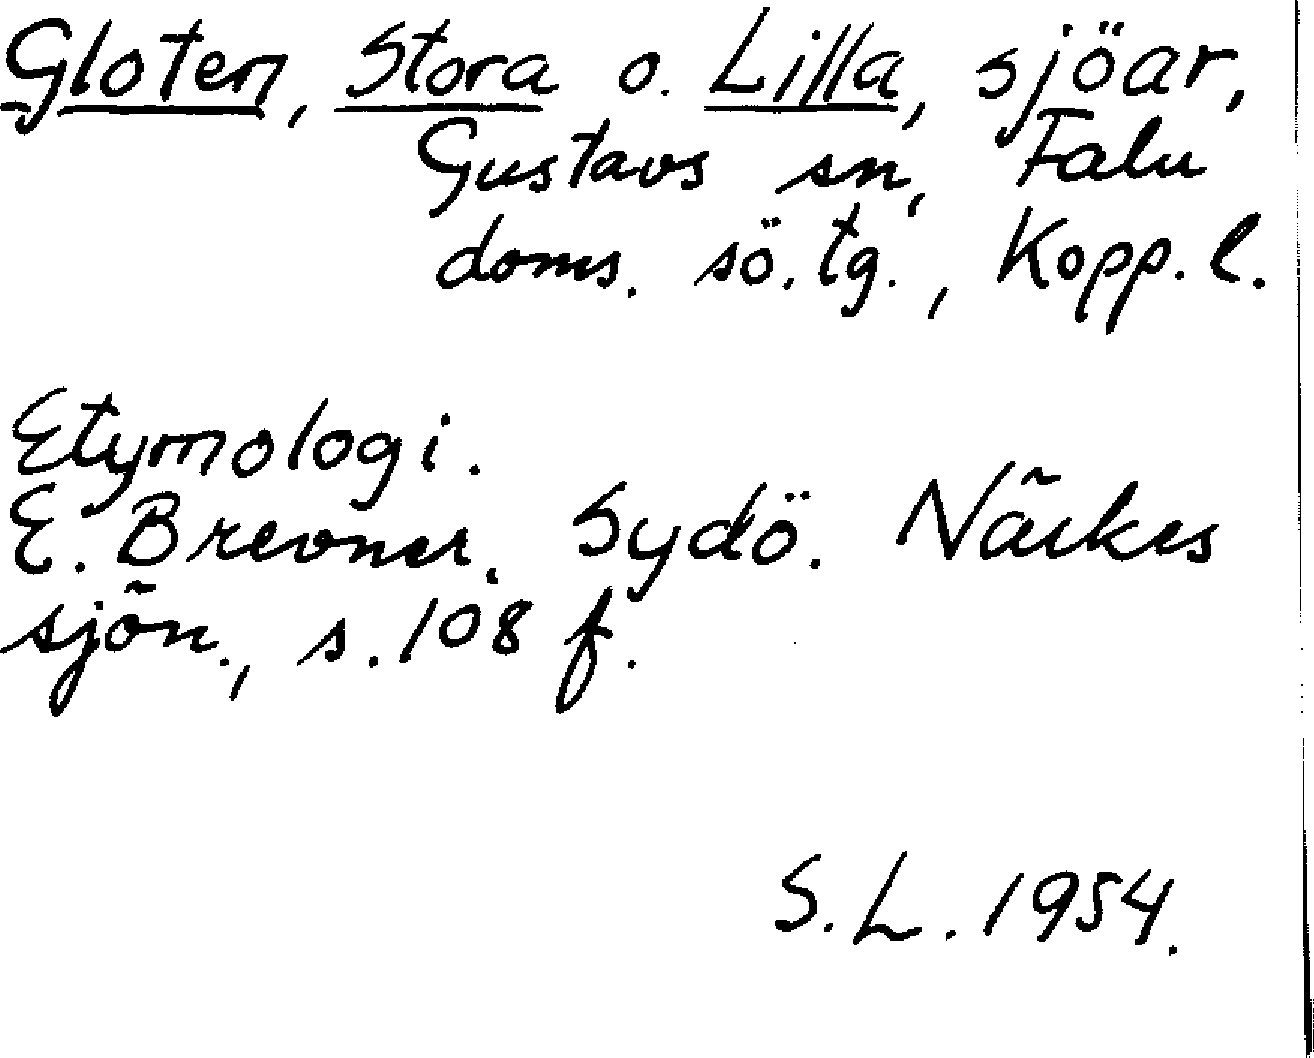 Gloten, Stora o. Lilla, sjöar,
Gustavs sn, Falu
doms. sö. tg., Kopp. l.
Etymologi.
E. Brevner. Sydö. Närkes
sjön., s. 108 f.
S. L. 1954.